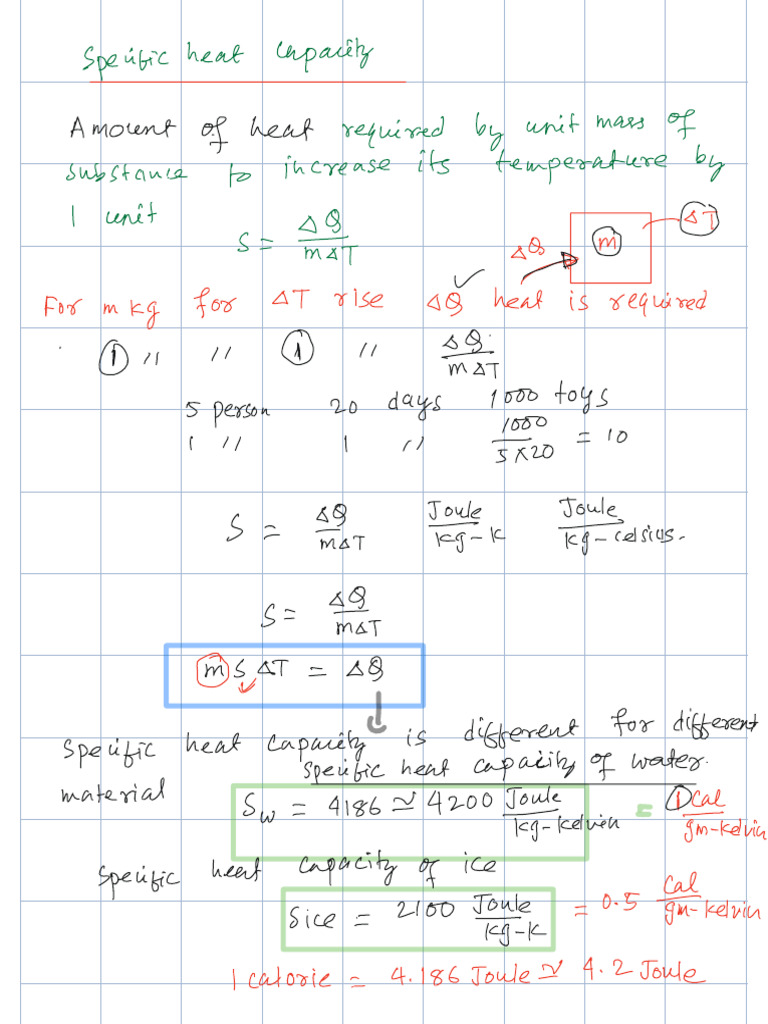 Specific heat capacity
Amount of heat required by unit mass of
substance to increase its temperature by
1 unit
S = ΔQ / mΔT
ΔQ m ΔT
For m kg for ΔT rise ΔQ heat is required
1 " " 1 " ΔQ / mΔT
5 person 20 days 1000 toys
1 " 1 " 1000 / 5×20 = 10
S = ΔQ / mΔT Joule / kg-K Joule / kg-celsius.
S = ΔQ / mΔT
m S ΔT = ΔQ
Specific heat capacity is different for different
material
specific heat capacity of water.
Sw = 4186 ≃ 4200 Joule / kg-kelvin = 1 Cal / gm-kelvin
Specific heat capacity of ice
Sice = 2100 Joule / kg-K = 0.5 Cal / gm-kelvin
1 calorie = 4.186 Joule ≃ 4.2 Joule